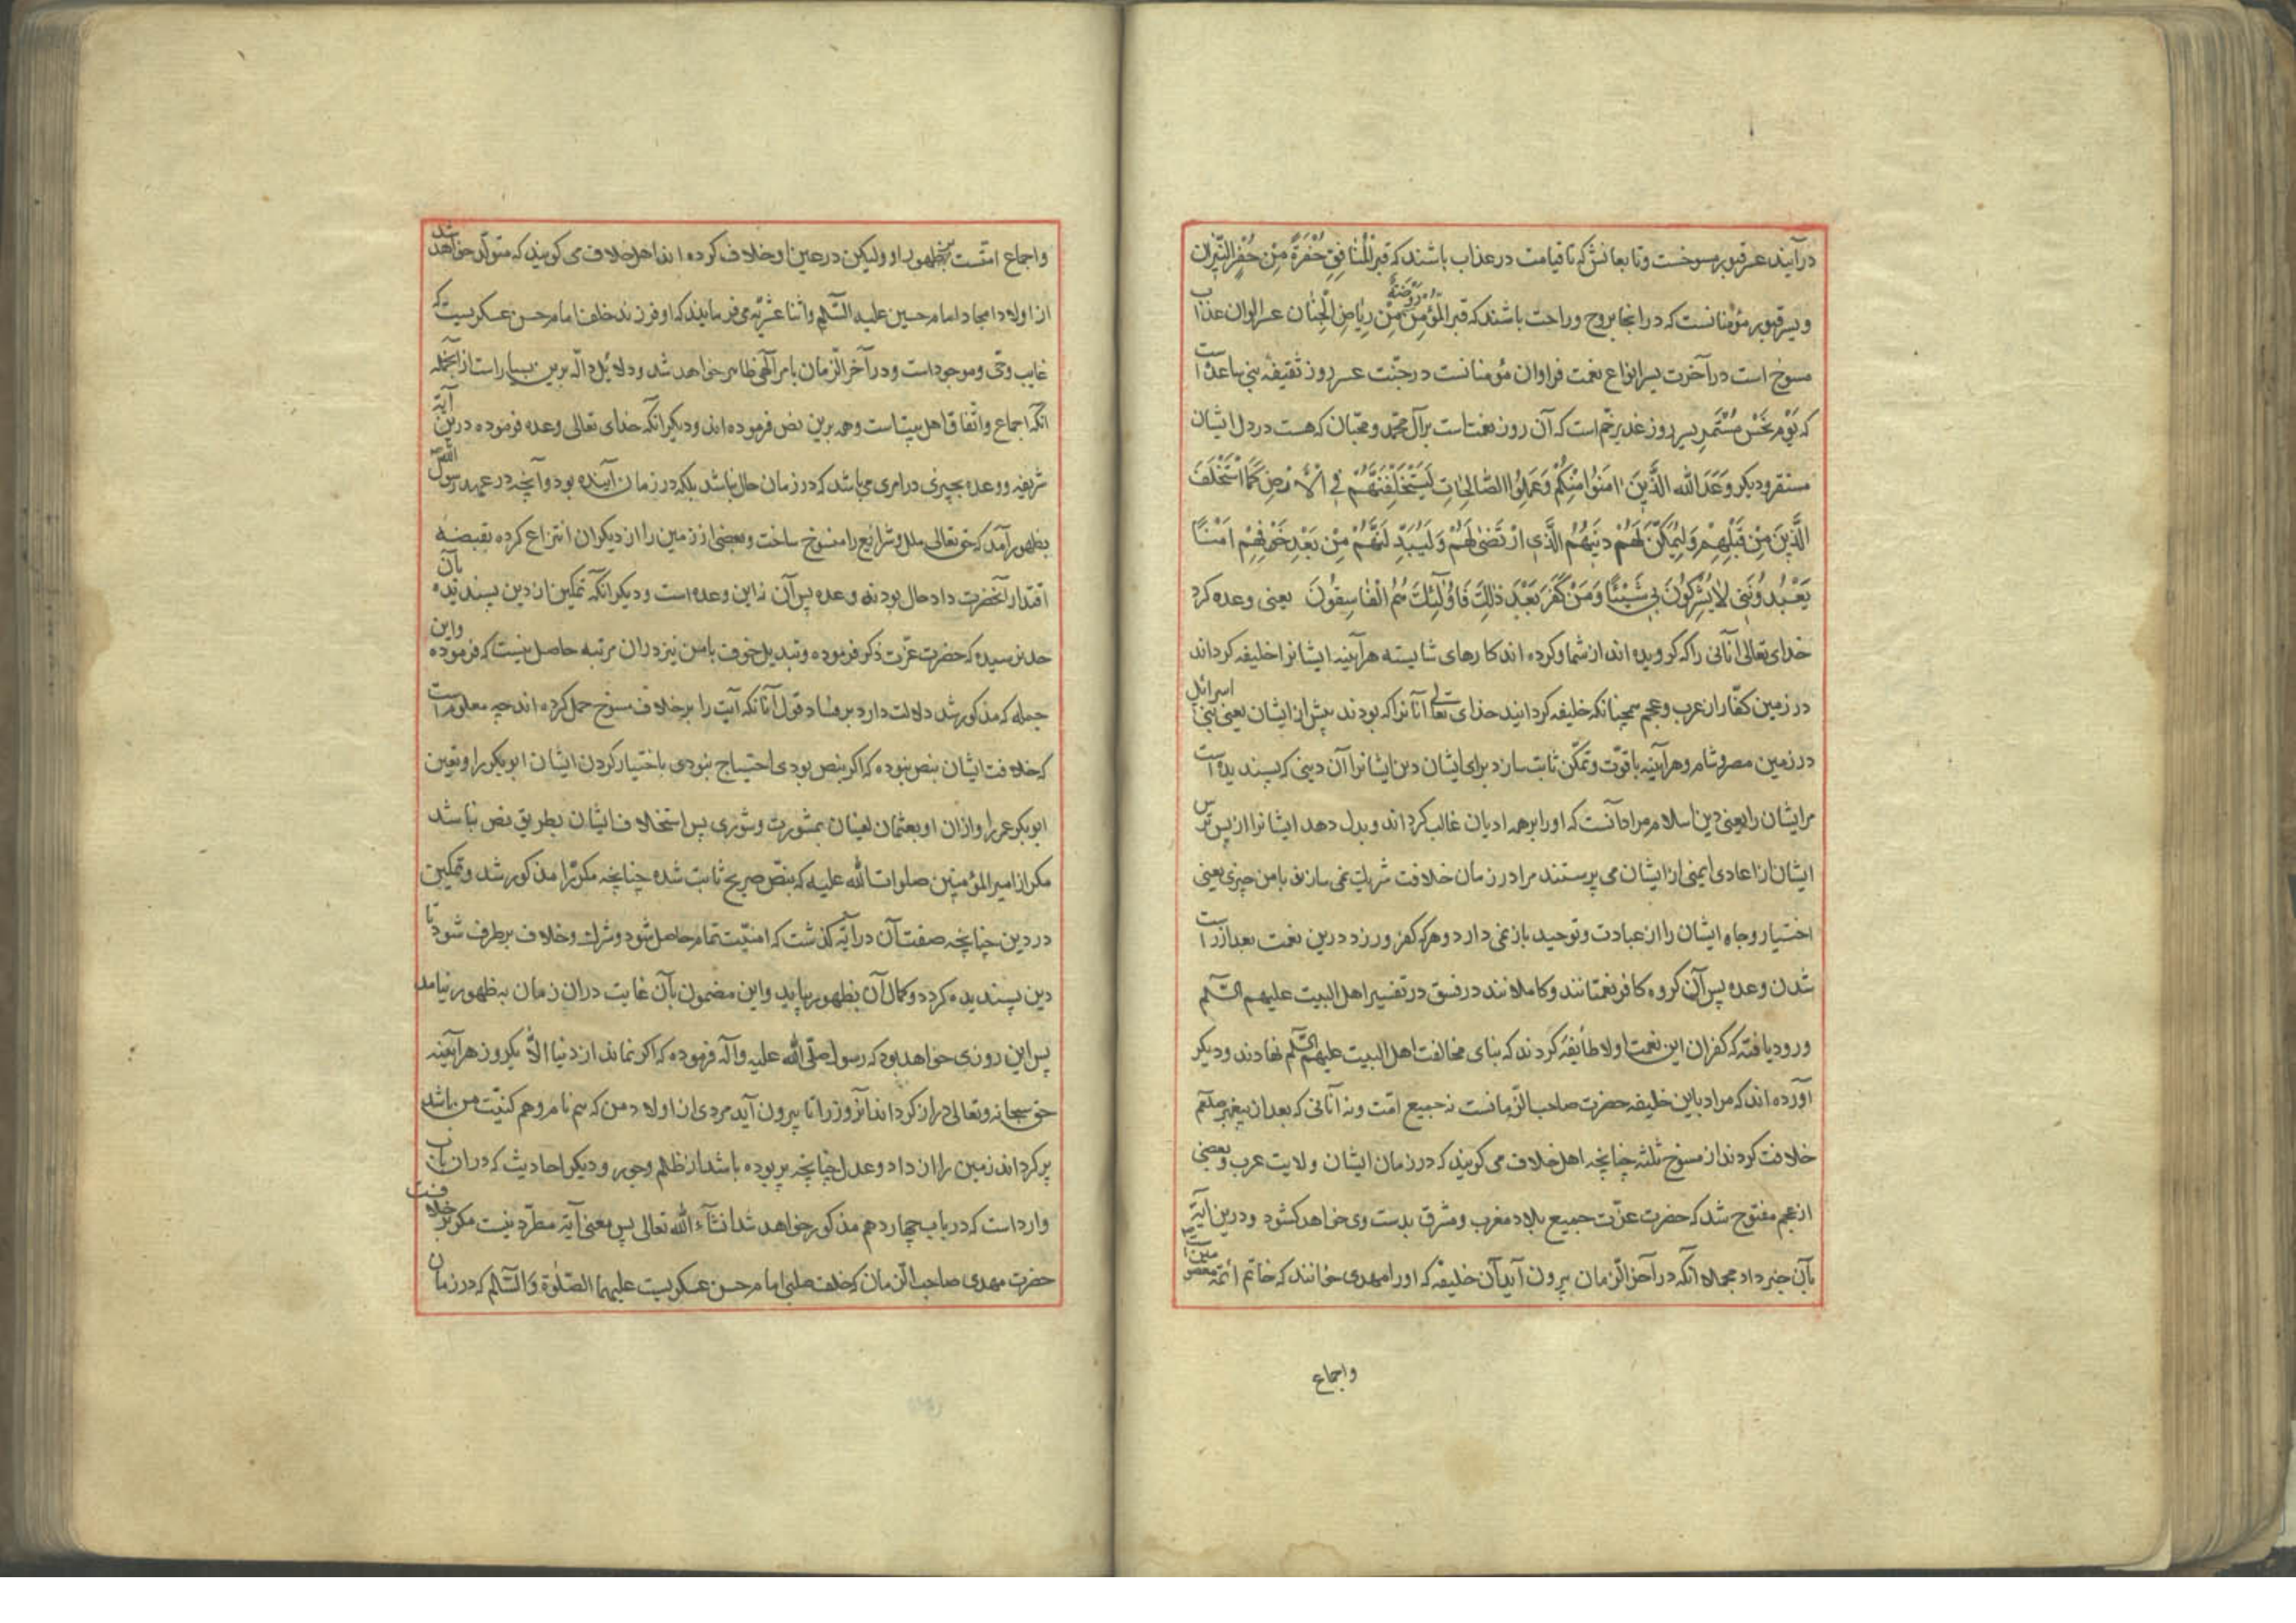 درآیند عسر قبور مسوخست و تابعانش که تا قیامت در عذاب باشند که قبر المنافق حُفرَةٌ مِنْ حُفَرِ النّیران
و یسر قبور مؤمنانست که در انجا بروح و راحت باشند که قبر المؤمن روضةٌ مِنْ رِیاضِ الْجِنان عسر الوان عذاب
مسوخ است در آخرت یسر انواع نعمت فراوان مؤمنانست در جنّت عسر روز ثقیفهٔ بنی ساعده است
که یَوْمِ نَحْسٍ مُسْتَمِرٍ یسر روز غدیر خم است که آن روز نعمتست بر آل محمد و محبّان که هست در دل ایشان
مستقر و دیکر وَعَدَ الله الَّذینَ امَنُوا مِنْکُمْ وَعَمِلُوا الصّالِحاتِ لَیَسْتَخْلِفَنَّهُمْ فِی الْأَرْضِ کَمَا اسْتَخْلَفَ
الَّذینَ مِنْ قَبْلِهِمْ وَلَیُمَکِّنَنَّ لَهُمْ دینَهُمُ الَّذِی ارْتَضی لَهُمْ وَلَیُبَدِّلَنَّهُمْ مِنْ بَعْدِ خَوْفِهِمْ اَمْنًا
یَعْبُدُونَنی لا یُشْرِکُونَ بی شَیْئًا وَمَنْ کَفَرَ بَعْدَ ذلِكَ فَاُولٰئِكَ هُمُ الْفاسِقُونَ یعنی وعده کرد
خدای تعالی آنانی را که کرویده اند از شما و کرده اند کارهای شایسته هرآینه ایشانرا خلیفه کرداند
در زمین کفّار از عرب و عجم همچنانکه خلیفه کردانید خدای تعالی آنانرا که بودند پیش از ایشان یعنی بنی اسرائیل
در زمین مصر و شام و هرآینه با قوّت و تمکّن ثابت سازد برای ایشان دین ایشانرا آن دینی که پسندیده است
مر ایشان را یعنی دین اسلام مراد آنست که او را بر همه ادیان غالب کرداند و بدل دهد ایشانرا از پس ترس
ایشان از اعادی ایمنی از ایشان می پرستند مرا در زمان خلافت شریک نمی سازند با من چیزی یعنی
اختیار و جاه ایشان را از عبادت و توحید باز نمی دارد و هرکه کفر ورزد درین نعمت بعد از راست
شدن وعده پس آن کروه کافر نعمتانند و کاملانند در فسق در تفسیر اهل البیت علیهم السّلم
ورود یافته که کفران این نعمت اولا طائفه کردند که بنای مخالفت اهل البیت علیهم السّلم نهادند و دیکر
آورده اند که مراد باین خلیفه حضرت صاحب الزّمانست نه جمیع امّت و نه آنانی که بعد از پیغمبر صلعم
خلافت کردند از مسوخ ثلثه چنانچه اهل خلاف می کویند که در زمان ایشان ولایت عرب و بعضی
از عجم مفتوح شد که حضرت عزّت جمیع بلاد مغرب و مشرق بدست وی خواهد کشود و درین آیه
بآن خبر داد مجملا آنکه در آخر الزّمان بیرون آید آن خلیفه که او را مهدی خوانند که خاتم ائمّه معصومین است
واجماع
واجماع امتست بظهور او ولیکن در عین او خلاف کرده اند اهل خلاف می کویند که متولّد خواهد شد
از اولاد امجاد امام حسین علیه السّلم واثنا عشریّه می فرمایند که او فرزند خلف امام حسن عسکریست که
غایب وحیّ و موجود است و در آخر الزّمان بامر الهی ظاهر خواهد شد و دلائل دالّه برین بسیار است از آنجمله
آنکه اجماع و اتّفاق اهل بیتست وهمه برین نص فرموده اند و دیکر آنکه خدای تعالی وعده فرموده درین آیه
شریفه و وعده بچیزی در امری می باشد که در زمان حال نباشد بلکه در زمان آینده بود و آنچه در عهد رسول الله
بظهور آمد که حق تعالی ملل و شرایع را منسوخ ساخت و بعضی از زمین را از دیکران انتزاع کرده بقبضه
اقتدار آنحضرت داد حال بود نه وعده پس آن نه این وعده است و دیکر آنکه تمکین از دین پسندیده بآن
حد نرسیده که حضرت عزّت ذکر فرموده و تبدیل خوف بامن نیز دران مرتبه حاصل نیست که فرموده واین
جمله که مذکور شد دلالت دارد بر فساد قول آنانکه آیت را بر خلاف مسوخ حمل کرده اند چه معلوم است
که خلافت ایشان بنص نبوده که اکر بنص بودی احتیاج نبودی باختیار کردن ایشان ابوبکر را و تعین
ابوبکر عمر را و از ان او بعثمان لعینان بمشورت و شوری پس استخلاف ایشان بطریق نص نباشد
مکر از امیر المؤمنین صلوات الله علیه که بنصّ صریح ثابت شده چنانچه مکررا مذکور شد و تمکین
در دین چنانچه صفت آن در آیه کذشت که امنیّت تمام حاصل شود و شرك و خلاف برطرف شود تا
دین پسندیده کردد و کمال آن بظهور بیاید و این مضمون بآن غایت دران زمان به ظهور نیامد
پس این روزی خواهد بود که رسول صلّی الله علیه وآله فرموده که اکر نماند از دنیا الّا یکروز هرآینه
حق سبحانه وتعالی دراز کرداند آنروز را تا بیرون آید مردی از اولاد من که هم نام و هم کنیّت من باشد
پر کرداند زمین را از داد وعدل چنانچه پر بوده باشد از ظلم و جور و دیکر احادیث که دران باب
وارد است که در باب چهاردهم مذکور خواهد شد انشآء الله تعالی پس معنی آیه مطرّد نیست مکر بر خلافت
حضرت مهدی صاحب الزمان که خلف صلبی امام حسن عسکریست علیهما الصّلوة والسّلم که در زمان